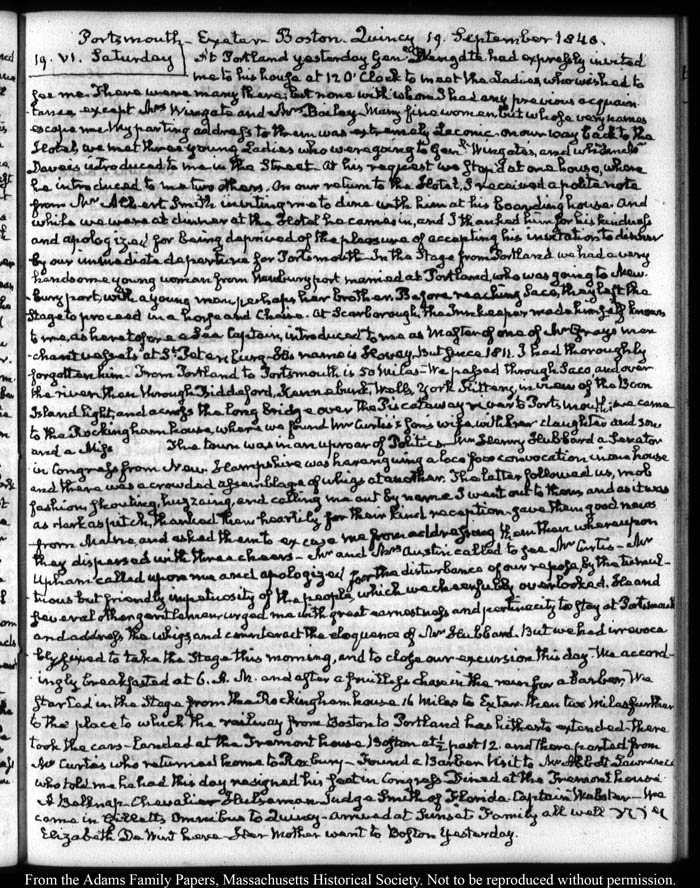 Portsmouth - Exeter Boston. Quincy 19. September 1840.
19. VI. Saturday At Portland yesterday Genl Wingate had expressly invited
me to his house at 12 O'Clock to meet the Ladies who wished to
see me. There were many there; but none with whom I had any previous acquain-
tance except Mrs Wingate and Mrs Bailey. Many fine women, but whose very names
escape me. My parting address to them was extremely Laconic. on our way back to the
Hotel, we met three young Ladies who were going to Genl Wingate's, and whom
Daveis introduced to me in the Street. At his request we stop'd at one house, where
he introduced to me two others. On our return to the Hotel, I received a polite note
from Mr Albert Smith inviting me to dine with him at his boarding house. And
while we were at dinner at the Hotel he came in, and I thanked him for his kindness
and apologized for being deprived of the pleasure of accepting his invitation to dinner
by our immediate departure for Portsmouth. In the Stage from Portland we had a very
handsome young woman from Newburyport married at Portland, who was going to New-
buryport, with a young man perhaps her brother. Before reaching Saco, they left the
Stage to proceed in a horse and Chaise. At Scarborough, the Innkeeper made himself known
to me, as heretofore a Sea Captain, introduced to me as Master of one of Mr Grays mer-
chant vessels at St Petersburg. His name is Howey. But since 1811. I had thoroughly
forgotten him. From Portland to Portsmouth is 50 miles - We passed through Saco and over
the river then through Biddeford, Kennebunk, Wells, York Kittery, in view of the Boon
Island light, and across the long bridge over the Piscataway river to Portsmouth; we came
to the Rockingham house, where we found Mr Curtis's son's wife with her daughter and son
and a Miss The town was in an uproar of Politics. Mr Henry Hubbard a Senator
in Congress from New Hampshire was haranguing a loco foco convocation in one house
and there was a crowded assemblage of whigs at another. The latter followed us, mob
fashion, shouting, huzzaing, and calling me out by name. I went out to them and as it was
as dark as pitch, thanked them heartily for their kind reception - gave them good news
from Maine, and asked them to excuse me from addressing them then whereupon
they dispersed with three cheers - Mr and Mrs Austin called to see Mr Curtis - Mr
Upham called upon me and apologized for the disturbance of our repose, by the tumul-
tuous but friendly impetuosity of the people, which we cheerfully overlooked. He and
several other gentlemen urged me with great earnestness and pertinacity to stay at Portsmouth
and address the whigs and counteract the eloquence of Mr Hubbard. But we had irrevoca-
bly fixed to take the Stage this morning, and to close our excursion this day. We accord-
ingly breakfasted at 6. A.M. and after a fruitless chase in the rain for a Barber, We
started in the Stage from the Rockingham house, 16 miles to Exeter then two Miles further
to the place to which the railway from Boston to Portland has hitherto extended. There
took the cars - Landed at the Tremont house Boston at ½ past 12 and there parted from
Mr Curtis who returned home to Roxbury - Found a Barber. Visit to Mr Abbot Lawrence
who told me he had this day resigned his seat in Congress. Dined at the Tremont house.
A Belknap - Chevalier Hulseman Judge Smith of Florida. Captain Webster - We
came in Gillett's Omnibus to Quincy - arrived at Sunset. Family all well
Elizabeth De Wint here - Her Mother went to Boston yesterday.
From the Adams Family Papers, Massachusetts Historical Society. Not to be reproduced without permission.